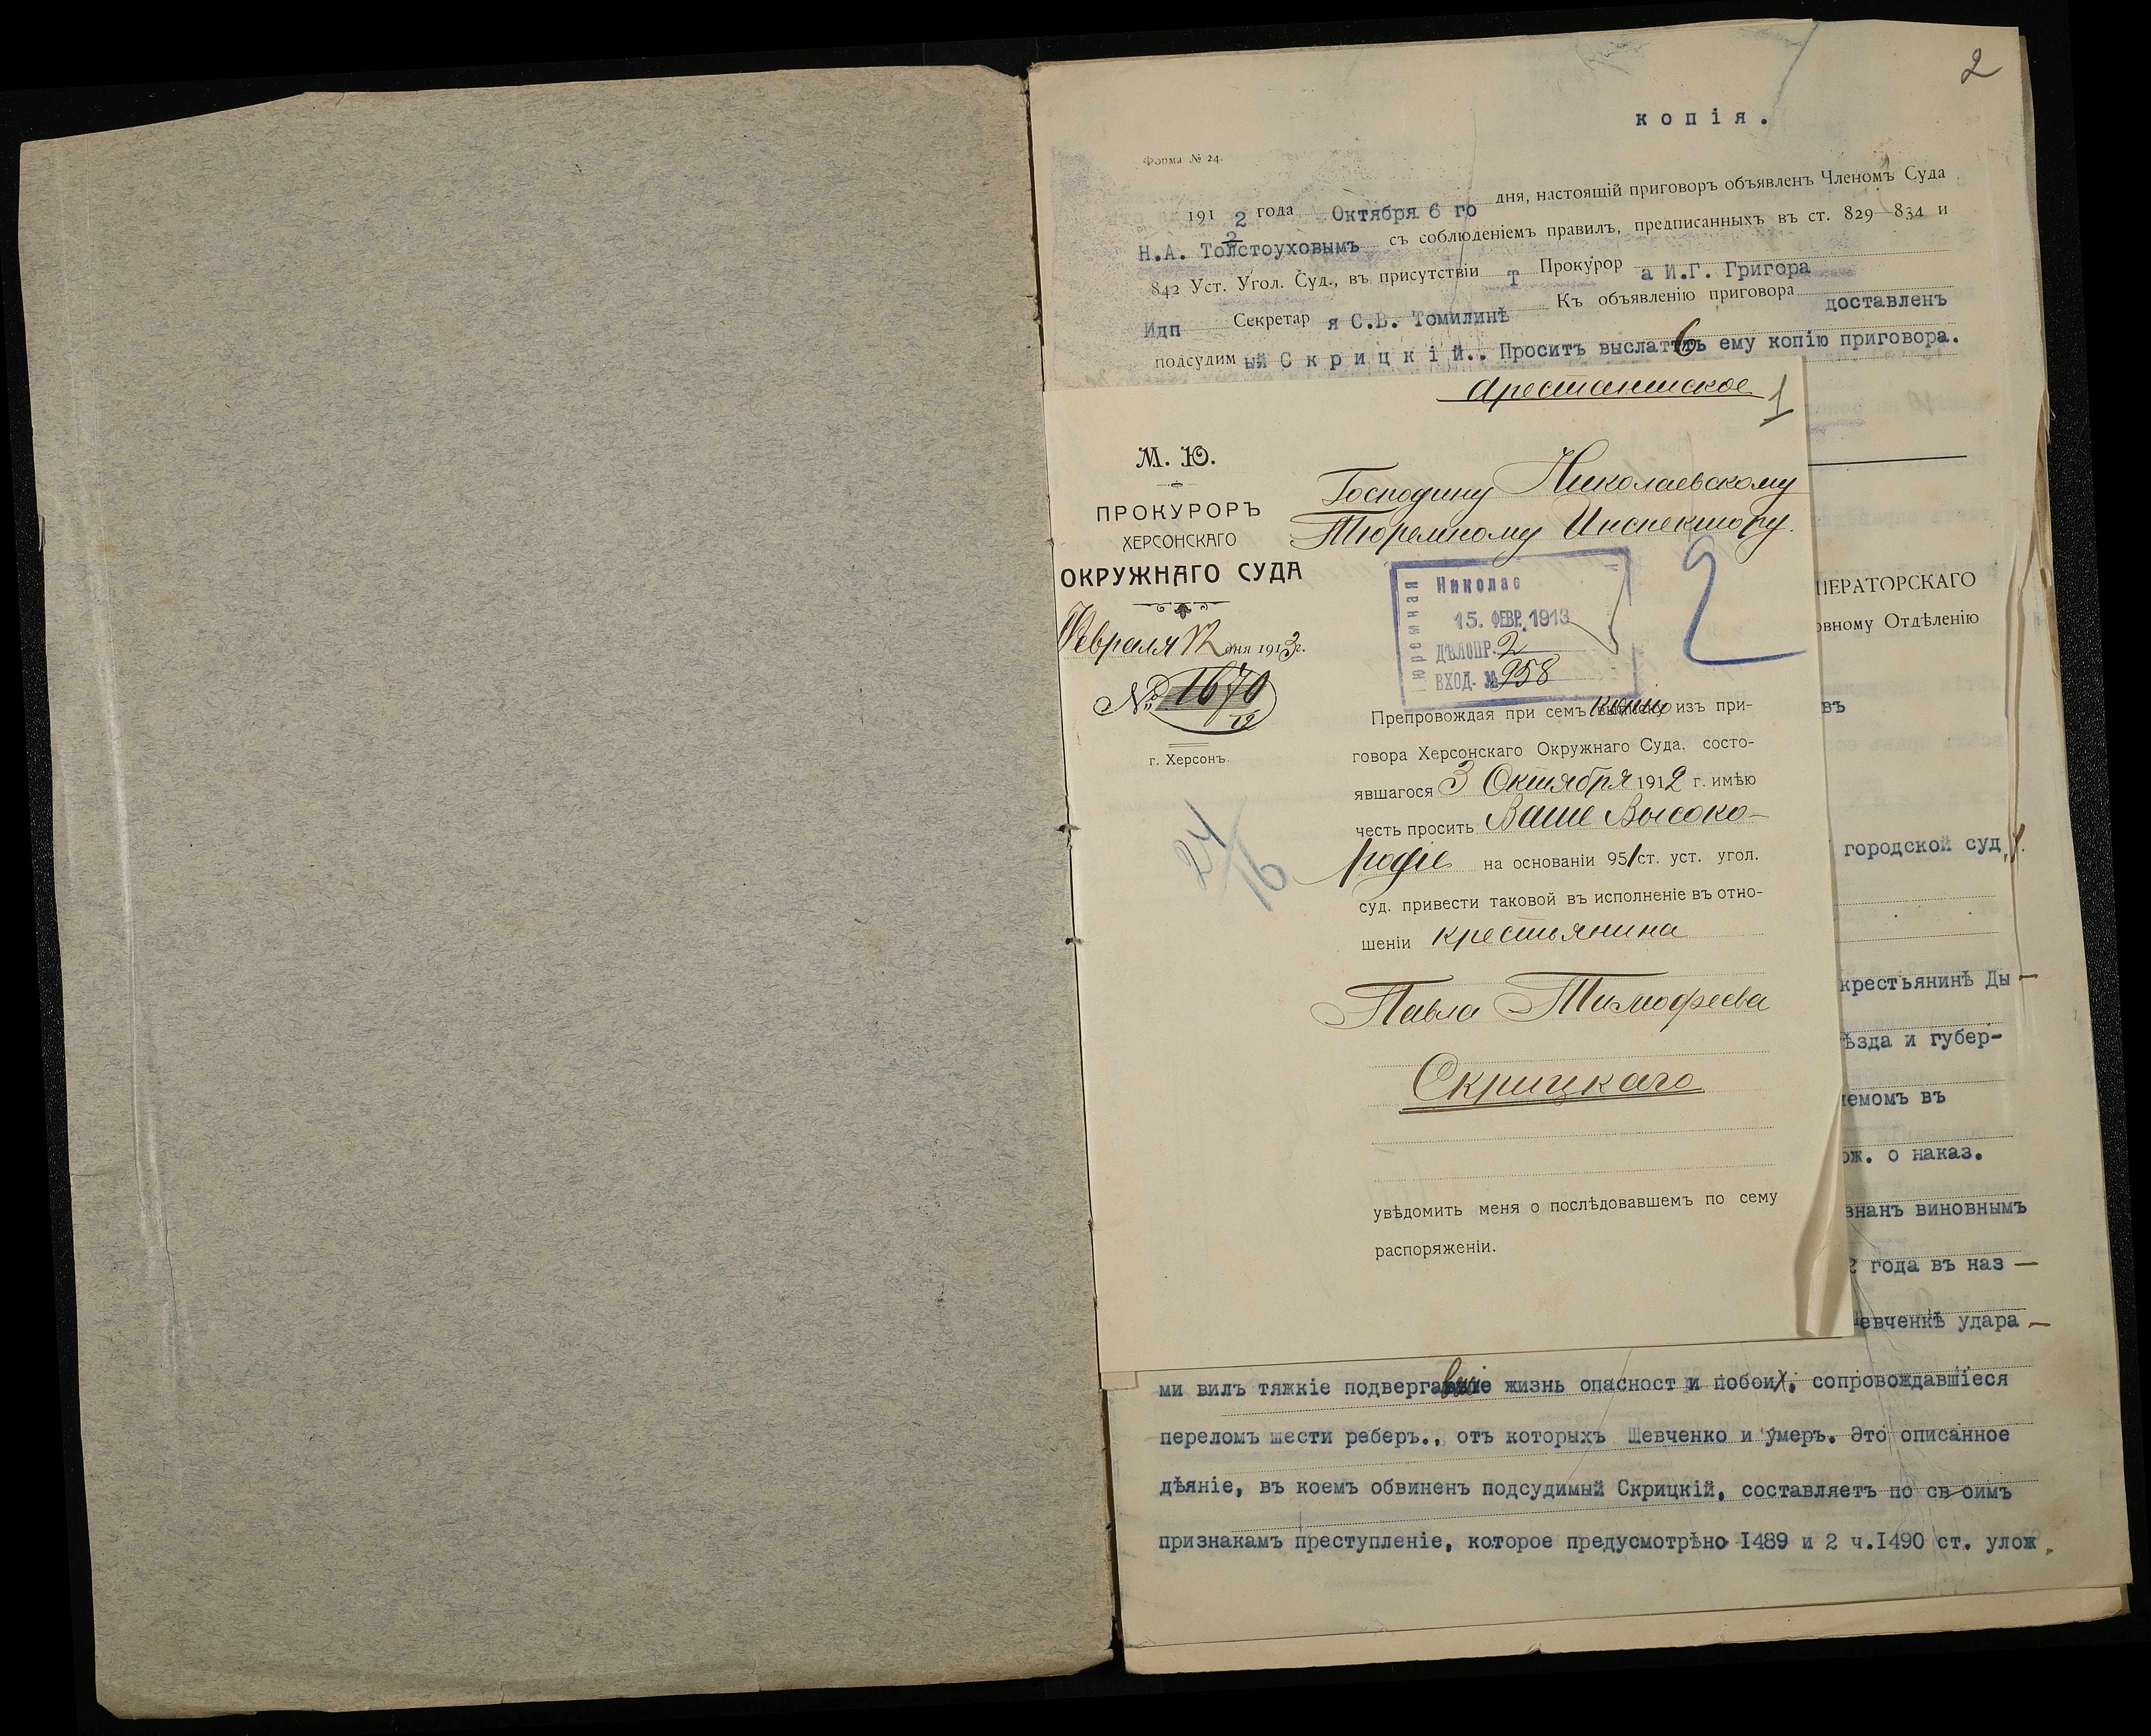 2
копія.
Форма № 24.
1912 года Октября 6 го дня, настоящій приговоръ объявленъ Членомъ Суда
Н.А. Толстоуховымъ съ соблюденіемъ правилъ, предписанныхъ въ ст. 829—834 и
842 Уст. Угол. Суд., въ присутствіи Т Прокурор а И.Г. Григора
Идп Секретар я С.В. Томилинѣ Къ объявленію приговора доставленъ
подсудим ый Скрицкій.. Проситъ выслать ему копію приговора.
Арестантское 1
М. Ю.
ПРОКУРОРЪ
ХЕРСОНСКАГО
ОКРУЖНАГО СУДА
Февраля 12 дня 1913 г.
№ 1670
12
г. Херсонъ.
24/16
Господину Николаевскому
Тюремному Инспектору.
2
Тюремная
Николаев
15. ФЕВР. 1913
ДѢЛОПР. 2
ВХОД. № 958
Препровождая при семъ копію изъ при-
говора Херсонскаго Окружнаго Суда, состо-
явшагося 3 Октября 1912 г. имѣю
честь просить Ваше Высоко-
родіе на основаніи 951 ст. уст. угол.
суд. привести таковой въ исполненіе въ отно-
шеніи крестьянина
Павла Тимофеева
Скрицкаго
увѣдомить меня о послѣдовавшемъ по сему
распоряженіи.
ПЕРАТОРСКАГО
овному Отдѣленію
въ
городской суд.
крестьянинѣ Ды—
ѣзда и губер-
емомъ въ
ож. о наказ.
знанъ виновнымъ
2 года въ наз—
евченкѣ удара—
ми вилъ тяжкіе подвергавшіе жизнь опасност и побои, сопровождавшіеся
переломъ шести реберъ., отъ которыхъ Шевченко и умеръ. Это описанное
дѣяніе, въ коемъ обвиненъ подсудимый Скрицкій, составляетъ по своимъ
признакамъ преступленіе, которое предусмотрѣно 1489 и 2 ч.1490 ст. улож.